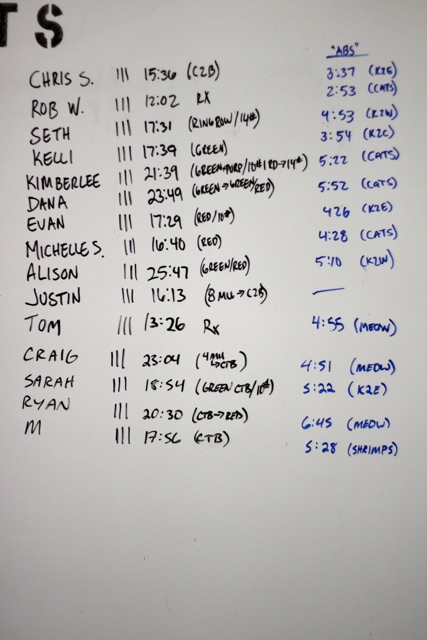 TS
"ABS"
CHRIS S. III 15:36 (C2B) 3:37 (K2E)
ROB W. III 12:02 RX 2:53 (CATS)
SETH III 17:31 (RING ROW/14#) 4:53 (K2W)
KELLI III 17:39 (GREEN) 3:54 (K2C)
KIMBERLEE III 21:39 (GREEN+PURP/10# 1 RD→14#) 5:22 (CATS)
DANA III 23:49 (GREEN→GREEN/RED) 5:52 (CATS)
EVAN III 17:29 (RED/10#) 426 (K2E)
MICHELLE S. III 16:40 (RED) 4:28 (CATS)
ALISON III 25:47 (GREEN/RED) 5:10 (K2W)
JUSTIN III 16:13 (8 MU→C2B) —
TOM III 13:26 Rx 4:55 (MEOW)
CRAIG III 23:04 (4 MU→CTB) 4:51 (MEOW)
SARAH III 18:54 (GREEN CTB/10#) 5:22 (K2E)
RYAN III 20:30 (CTB→RED) 6:45 (MEOW)
M III 17:56 (CTB) 5:28 (SHRIMPS)